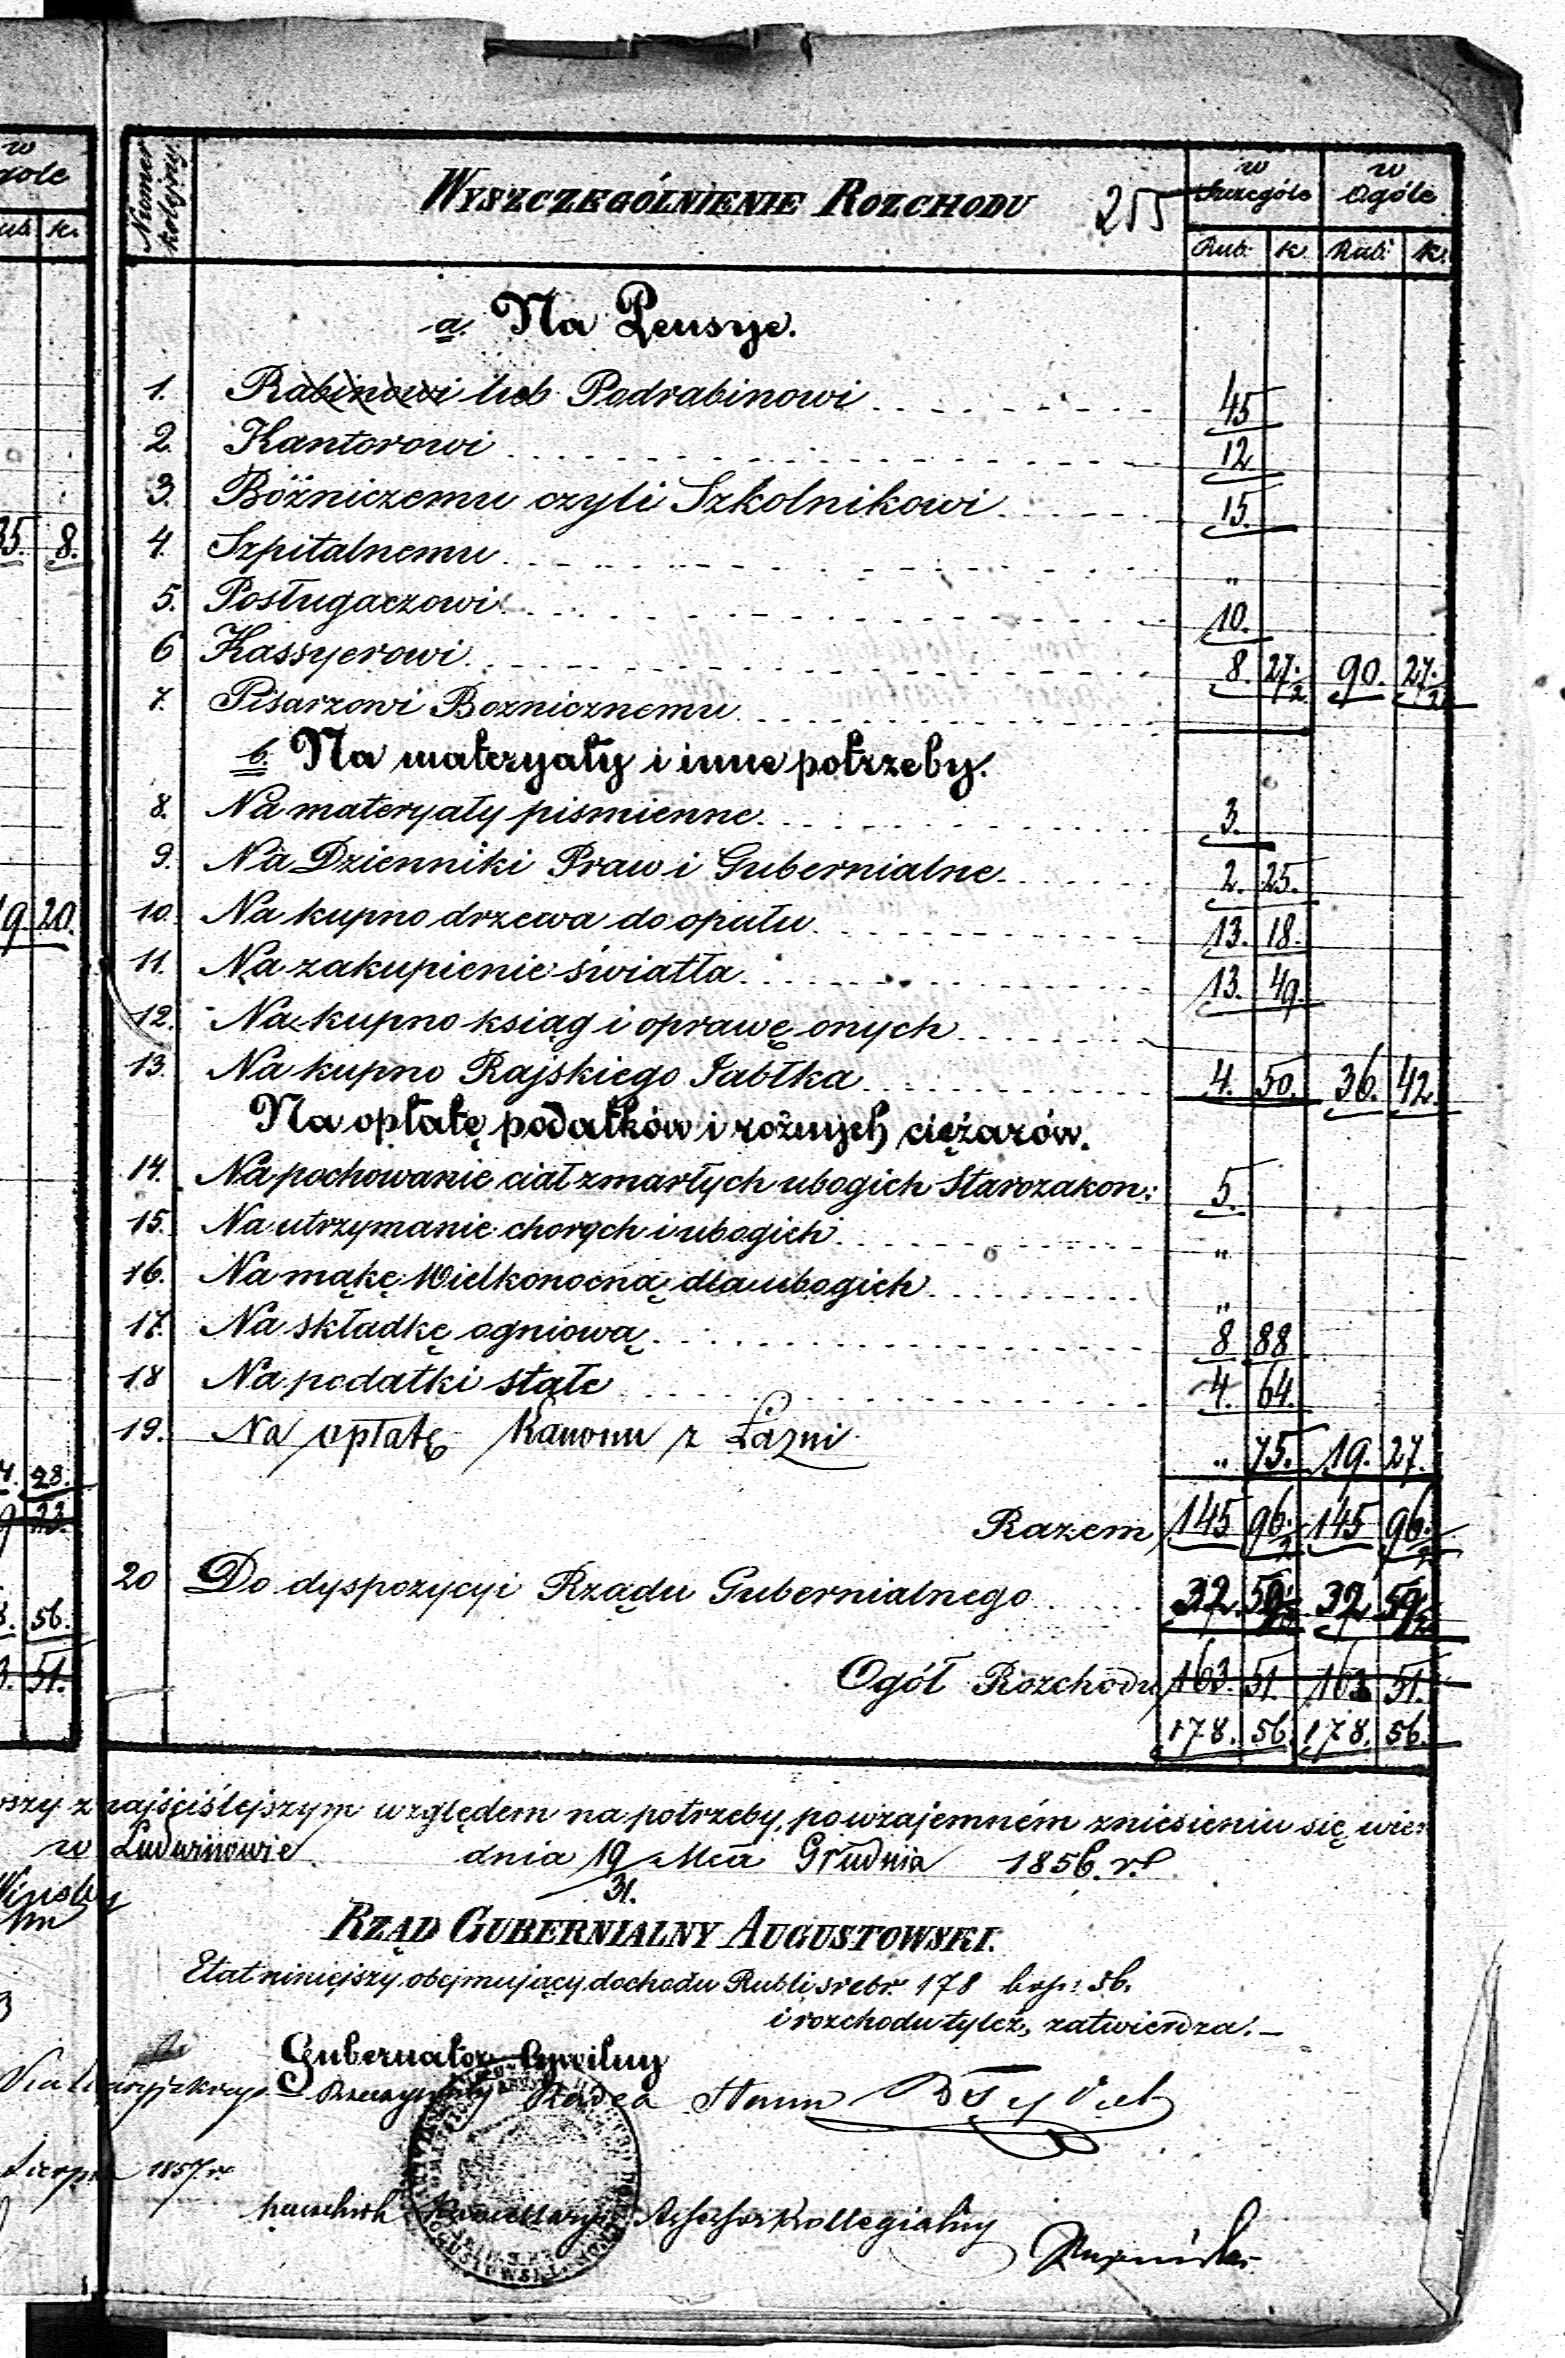 w
gole
ub. k.
35. 8.
19. 20.
4. 28.
9 23.
8. 56.
3. 51.
Numer kolejny.
WYSZCZEGÓLNIENIE ROZCHODU 255
w Szczególe
w Ogóle
Rub. k. Rub. k.
a. Na Pensye.
1. Rabinowi lub Podrabinowi 45
2. Kantorowi 12
3. Bóźniczemu czyli Szkolnikowi 15.
4. Szpitalnemu "
5. Posługaczowi 10.
6 Kassyerowi 8. 27./2 90. 27./2
7. Pisarzowi Boznicznemu
b. Na materyały i inne potrzeby.
8. Na materyały pismienne 3.
9. Na Dzienniki Praw i Gubernialne 2. 25.
10. Na kupno drzewa do opału 13. 18.
11. Na zakupienie światła 13. 49.
12. Na kupno ksiąg i oprawę onych
13. Na kupno Rajskiego Jabłka 4. 50. 36. 42
Na opłatę podatków i rożnych ciężarów.
14. Na pochowanie ciał zmarłych ubogich Starozakon: 5.
15. Na utrzymanie chorych i ubogich "
16. Na mąkę Wielkonocną dla ubogich "
17. Na składkę ogniową 8 88
18 Na podatki stałe 4. 64.
19. Na opłatę Kanonu z Łazni " 75. 19. 27.
Razem 145 96./2 145 96./2
20 Do dyspozycyi Rządu Gubernialnego 32 59./2 32 59./2
Ogół Rozchodu 163. 51. 163 51.
178. 56. 178. 56.
szy z najściślejszym względem na potrzeby, po wzajemném zniesieniu się wier
w Ludwinowie dnia 19/31. Mca Grudnia 1856. r.
RZĄD GUBERNIALNY AUGUSTOWSKI.
Etat niniejszy obejmujący dochodu Rubli srebr. 178 kop: 56.
i rozchodu tyleż, zatwierdza.—
Gubernator Cywilny
Rzeczywisty Radca Stanu
Sierpnia 1857 r.
Naczelnik Kancellaryi Assessor Kollegialny